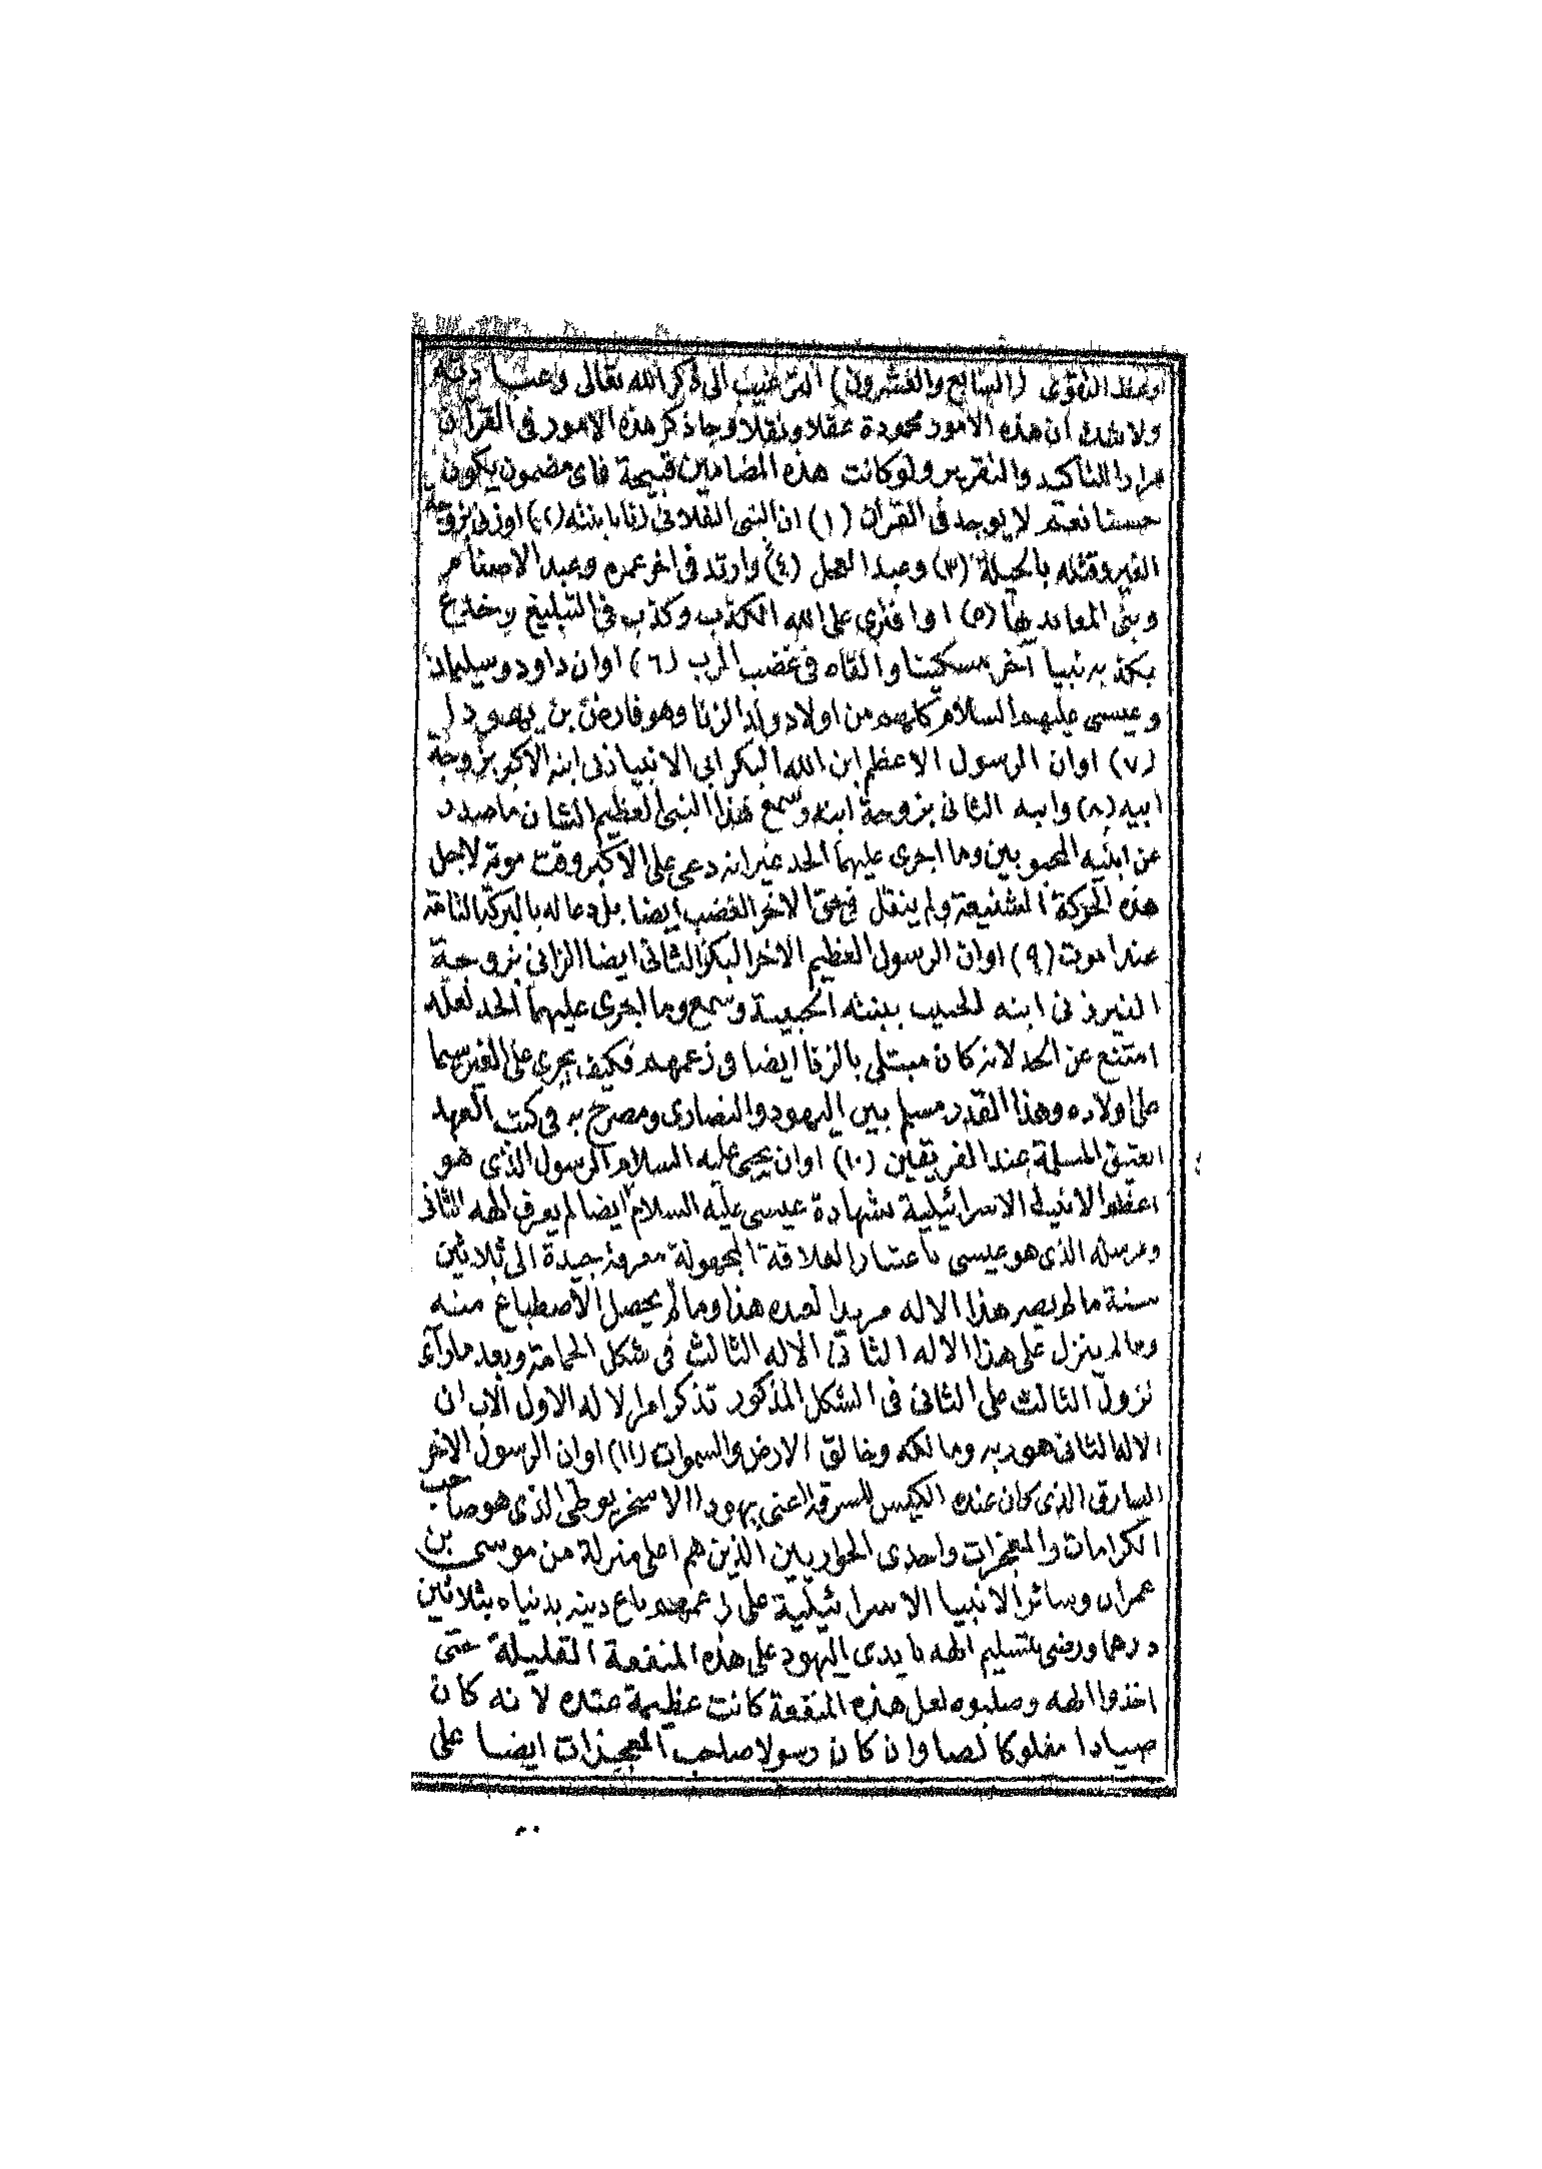 وعقد التقوى (السابع والعشرون) الترغيب الى ذكر الله تعالى وعبادته
ولا شك ان هذه الامور محمودة عقلا ونقلا وجا ذكر هذه الامور فى القرآن
مرارا للتاكيد والتقرير ولو كانت هذه المضامين قبيحة فاى مضمون يكون
حسنا نعم لا يوجد فى القرآن (١) ان النبى الفلانى زنا بابنته (٢) او زنى بزوجة
الغير وقتله بالحيلة (٣) وعبد العجل (٤) وارتد فى اخر عمره وعبد الاصنام
وبنى المعابد لها (٥) او افترى على الله الكذب وكذب فى التبليغ وخدع
بكذبه نبيا آخر مسكينا والقاه فى غضب الرب (٦) او ان داود وسليمان
وعيسى عليهم السلام كلهم من اولاد ولد الزنا وهو فارض بن يهودا
(٧) او ان الرسول الاعظم ابن الله البكر ابى الانبيا زنى ابنه الاكبر بزوجة
ابيه (٨) وابنه الثانى بزوجة ابنه وسمع هذا النبى العظيم الشان ما صدر
عن ابنيه المحبوبين وما اجرى عليهما الحد غير انه دعى على الاكبر وقت موته لاجل
هذه الحركة الشنيعة ولم ينقل فى حق الاخر الغضب ايضا بل دعا له بالبركة التامة
عند الموت (٩) او ان الرسول العظيم الاخر البكر الثانى ايضا الزانى بزوجة
الغير زنى ابنه الحبيب ببنته الحبيبة وسمع وما اجرى عليهما الحد لعله
امتنع عن الحد لانه كان مبتلى بالزنا ايضا فى زعمهم فكيف يجرى على الغير سيما
على اولاده وهذا القدر مسلم بين اليهود والنصارى ومصرح به فى كتب العهد
العتيق المسلمة عند الفريقين (١٠) او ان يحيى عليه السلام الرسول الذى هو
اعظم الانبيا الاسرائيلية بشهادة عيسى عليه السلام ايضا لم يعرف الهه الثانى
ومرسله الذى هو عيسى باعتبار العلاقة المجهولة معرفة جيدة الى ثلاثين
سنة ما لم يصر هذا الاله مريدا لعبده هذا وما لم يحصل الاصطباغ منه
وما لم ينزل على هذا الاله الثانى الاله الثالث فى شكل الحمامة وبعد ما رآء
نزول الثالث على الثانى فى الشكل المذكور تذكر امر الاله الاول الاب ان
الاله الثانى هو ربه ومالكه وخالق الارض والسموات (١١) او ان الرسول الاخر
السارق الذى كان عنده الكيس للسرقة اعنى يهودا الاسخريوطى الذى هو صاحب
الكرامات والمعجزات واحدى الحواريين الذين هم اعلى منزلة من موسى بن
عمران وسائر الانبيا الاسرائيلية على زعمهم باع دينه بدنياه بثلاثين
درهما ورضى بتسليم الهه بايدى اليهود على هذه المنفعة القليلة حتى
اخذوا الهه وصلبوه لعل هذه المنفعة كانت عظيمة عنده لانه كان
صيادا مفلوكا لصا وان كان رسولا صاحب المعجزات ايضا على